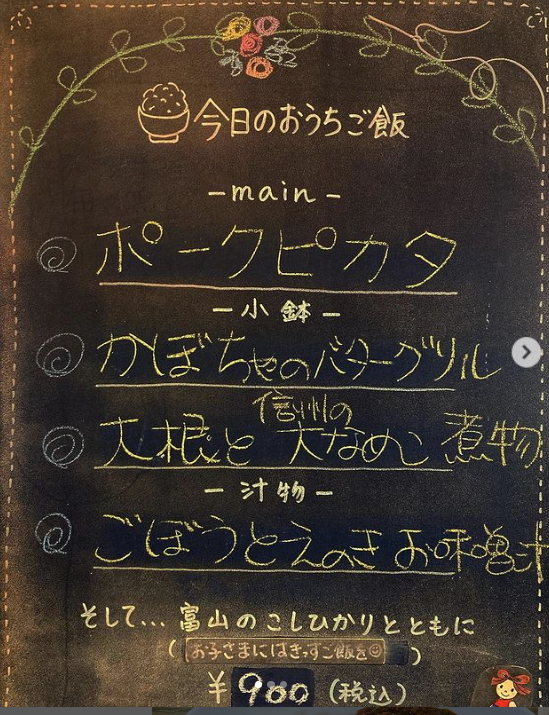 今日のおうちご飯
-main-
ポークピカタ
-小鉢-
かぼちゃのバターグリル
信州の
大根と大なめこ煮物
-汁物-
ごぼうとえのきお味噌汁
そして...富山のこしひかりとともに
(お子さまにはきっずご飯を☺)
¥900(税込)